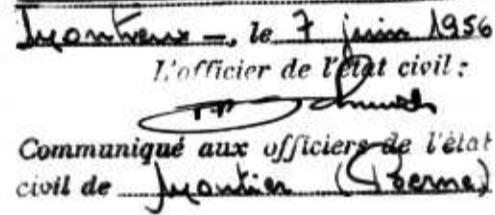 Montreux –, le 7 juin 1956
L'officier de l'état civil :
Communiqué aux officiers de l'état
civil de Moutier (Berne)